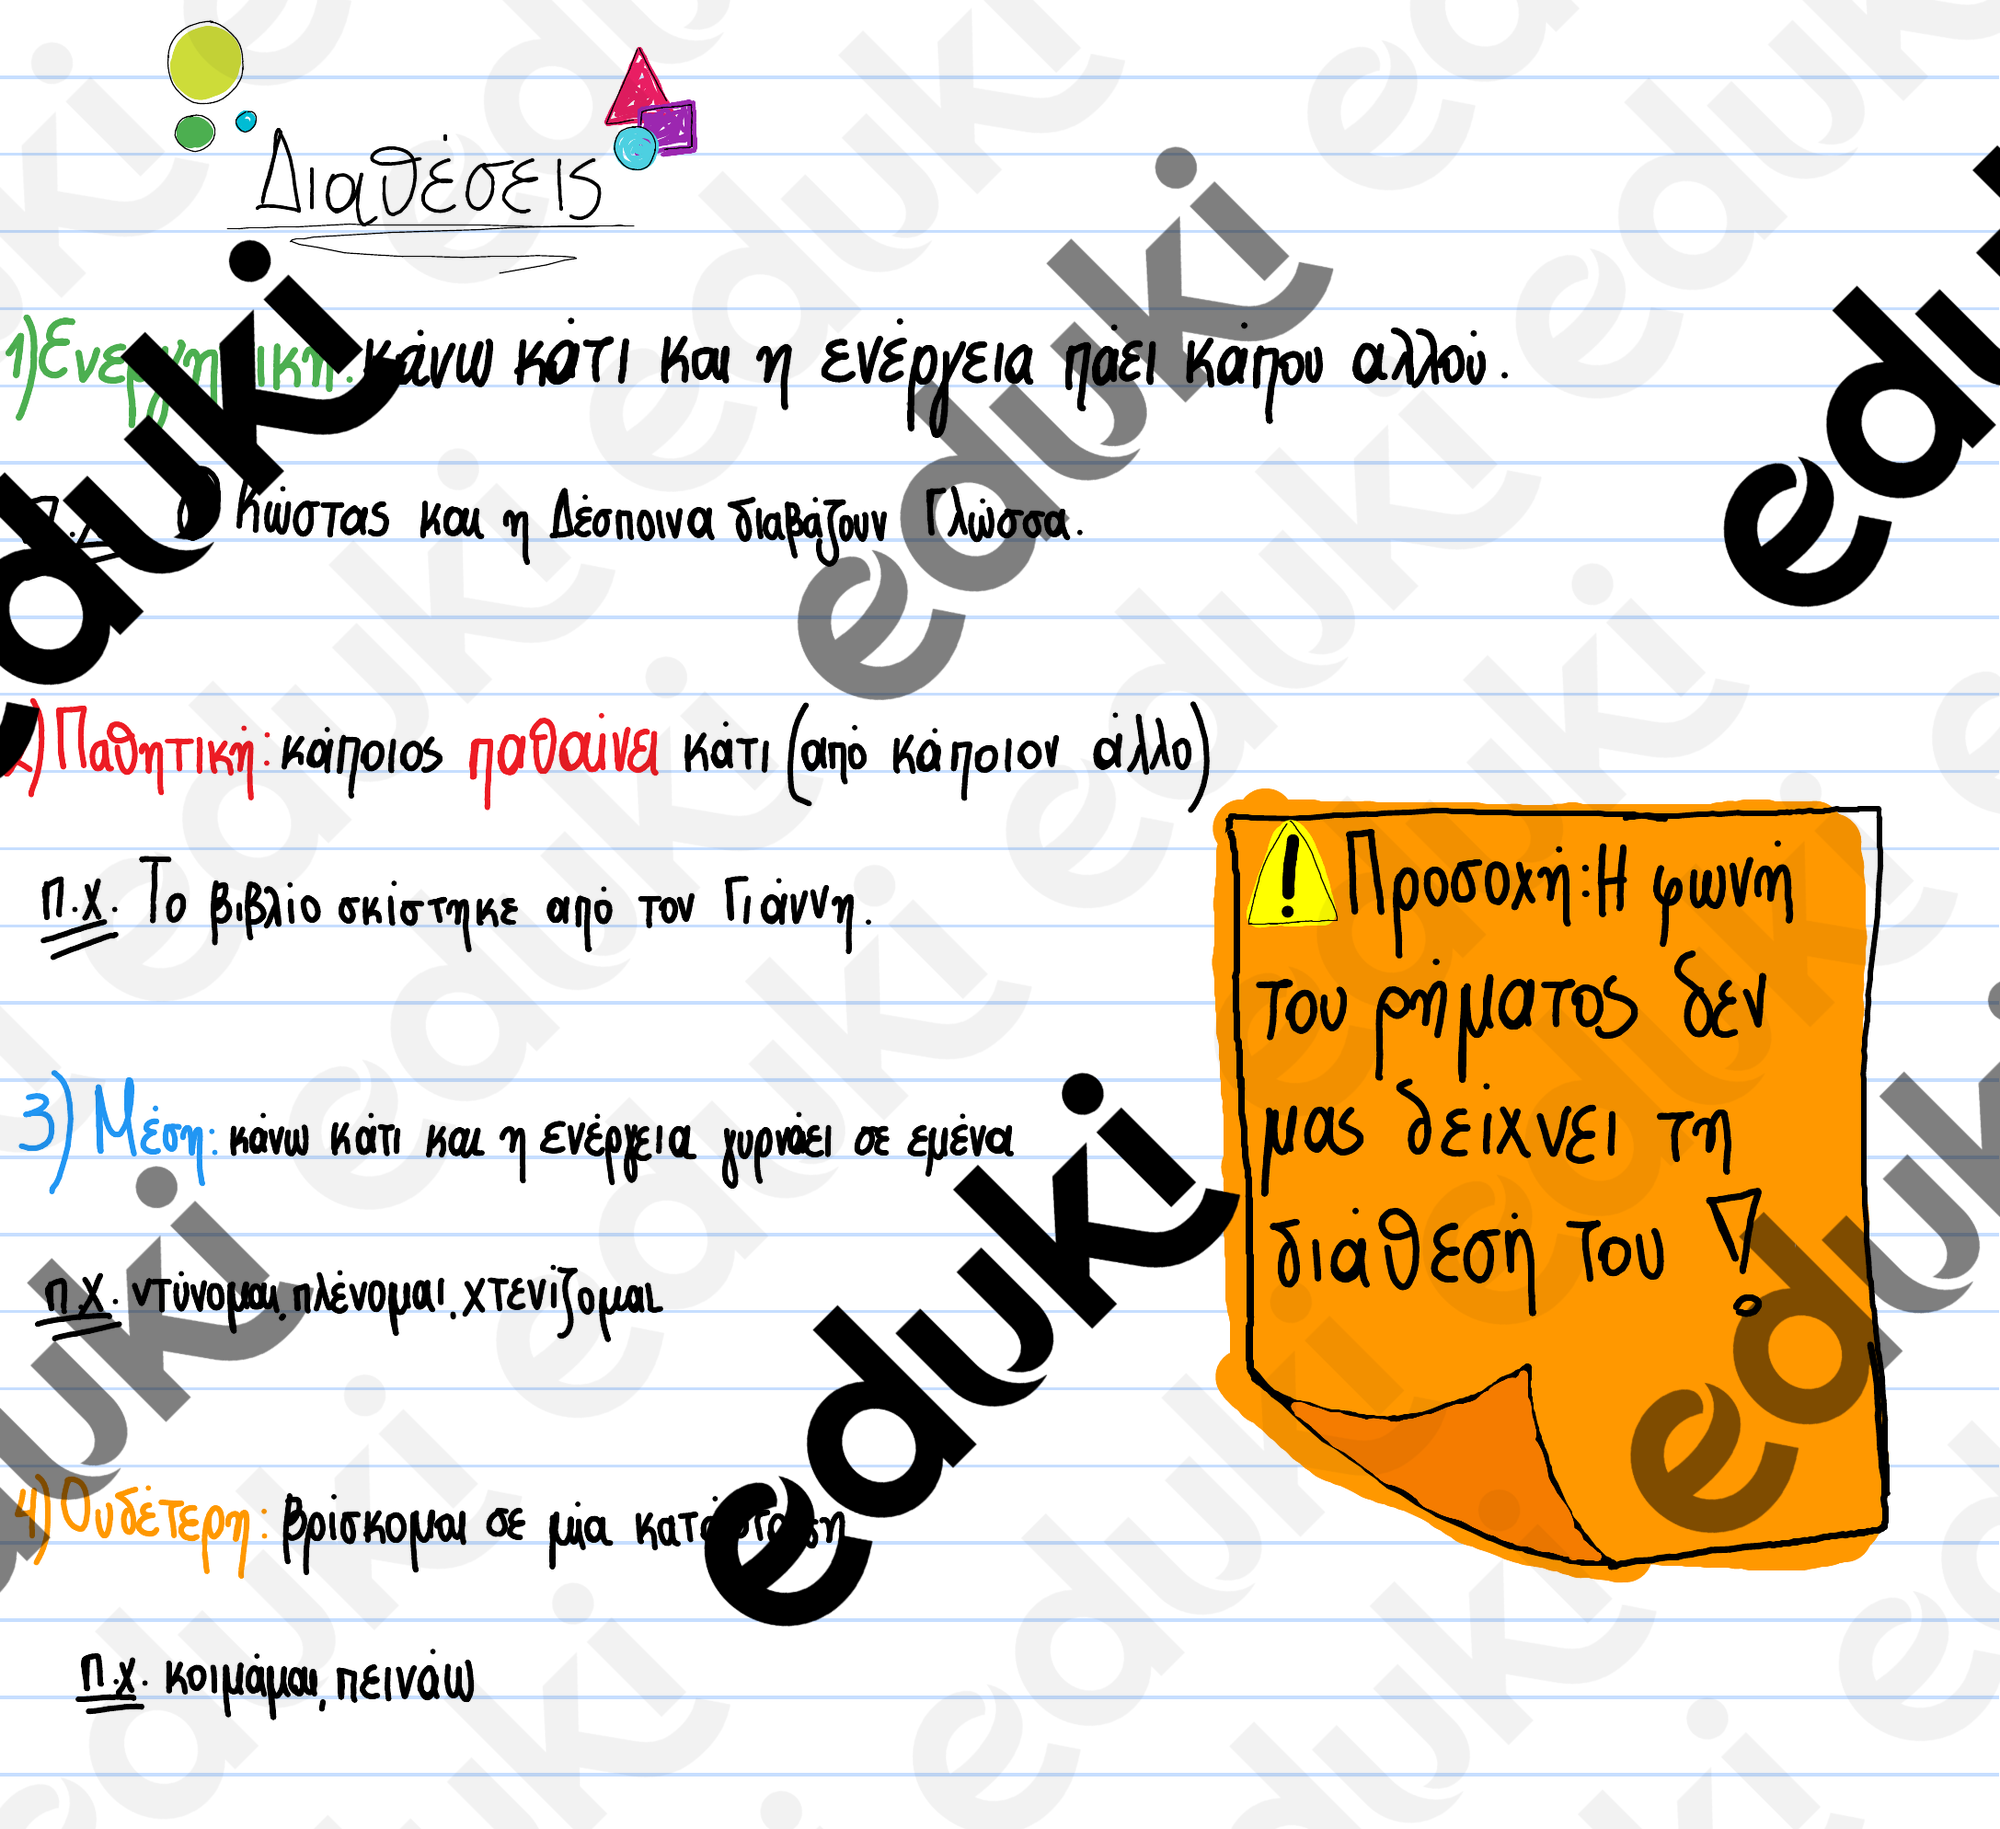 Διαθέσεις
1) Ενεργητική: κάνω κάτι και η ενέργεια πάει κάπου αλλού.
Κώστας και η Δέσποινα διαβάζουν Γλώσσα.
2) Παθητική: κάποιος παθαίνει κάτι (από κάποιον άλλο)
π.χ. Το βιβλίο σκίστηκε από τον Γιάννη.
! Προσοχή: Η φωνή
του ρήματος δεν
μας δείχνει τη
διάθεσή του !
3) Μέση: κάνω κάτι και η ενέργεια γυρνάει σε εμένα
π.χ. ντύνομαι, πλένομαι, χτενίζομαι
4) Ουδέτερη: βρίσκομαι σε μια κατάσταση
π.χ. κοιμάμαι, πεινάω
eduki
eduki
eduki
eduki
eduki